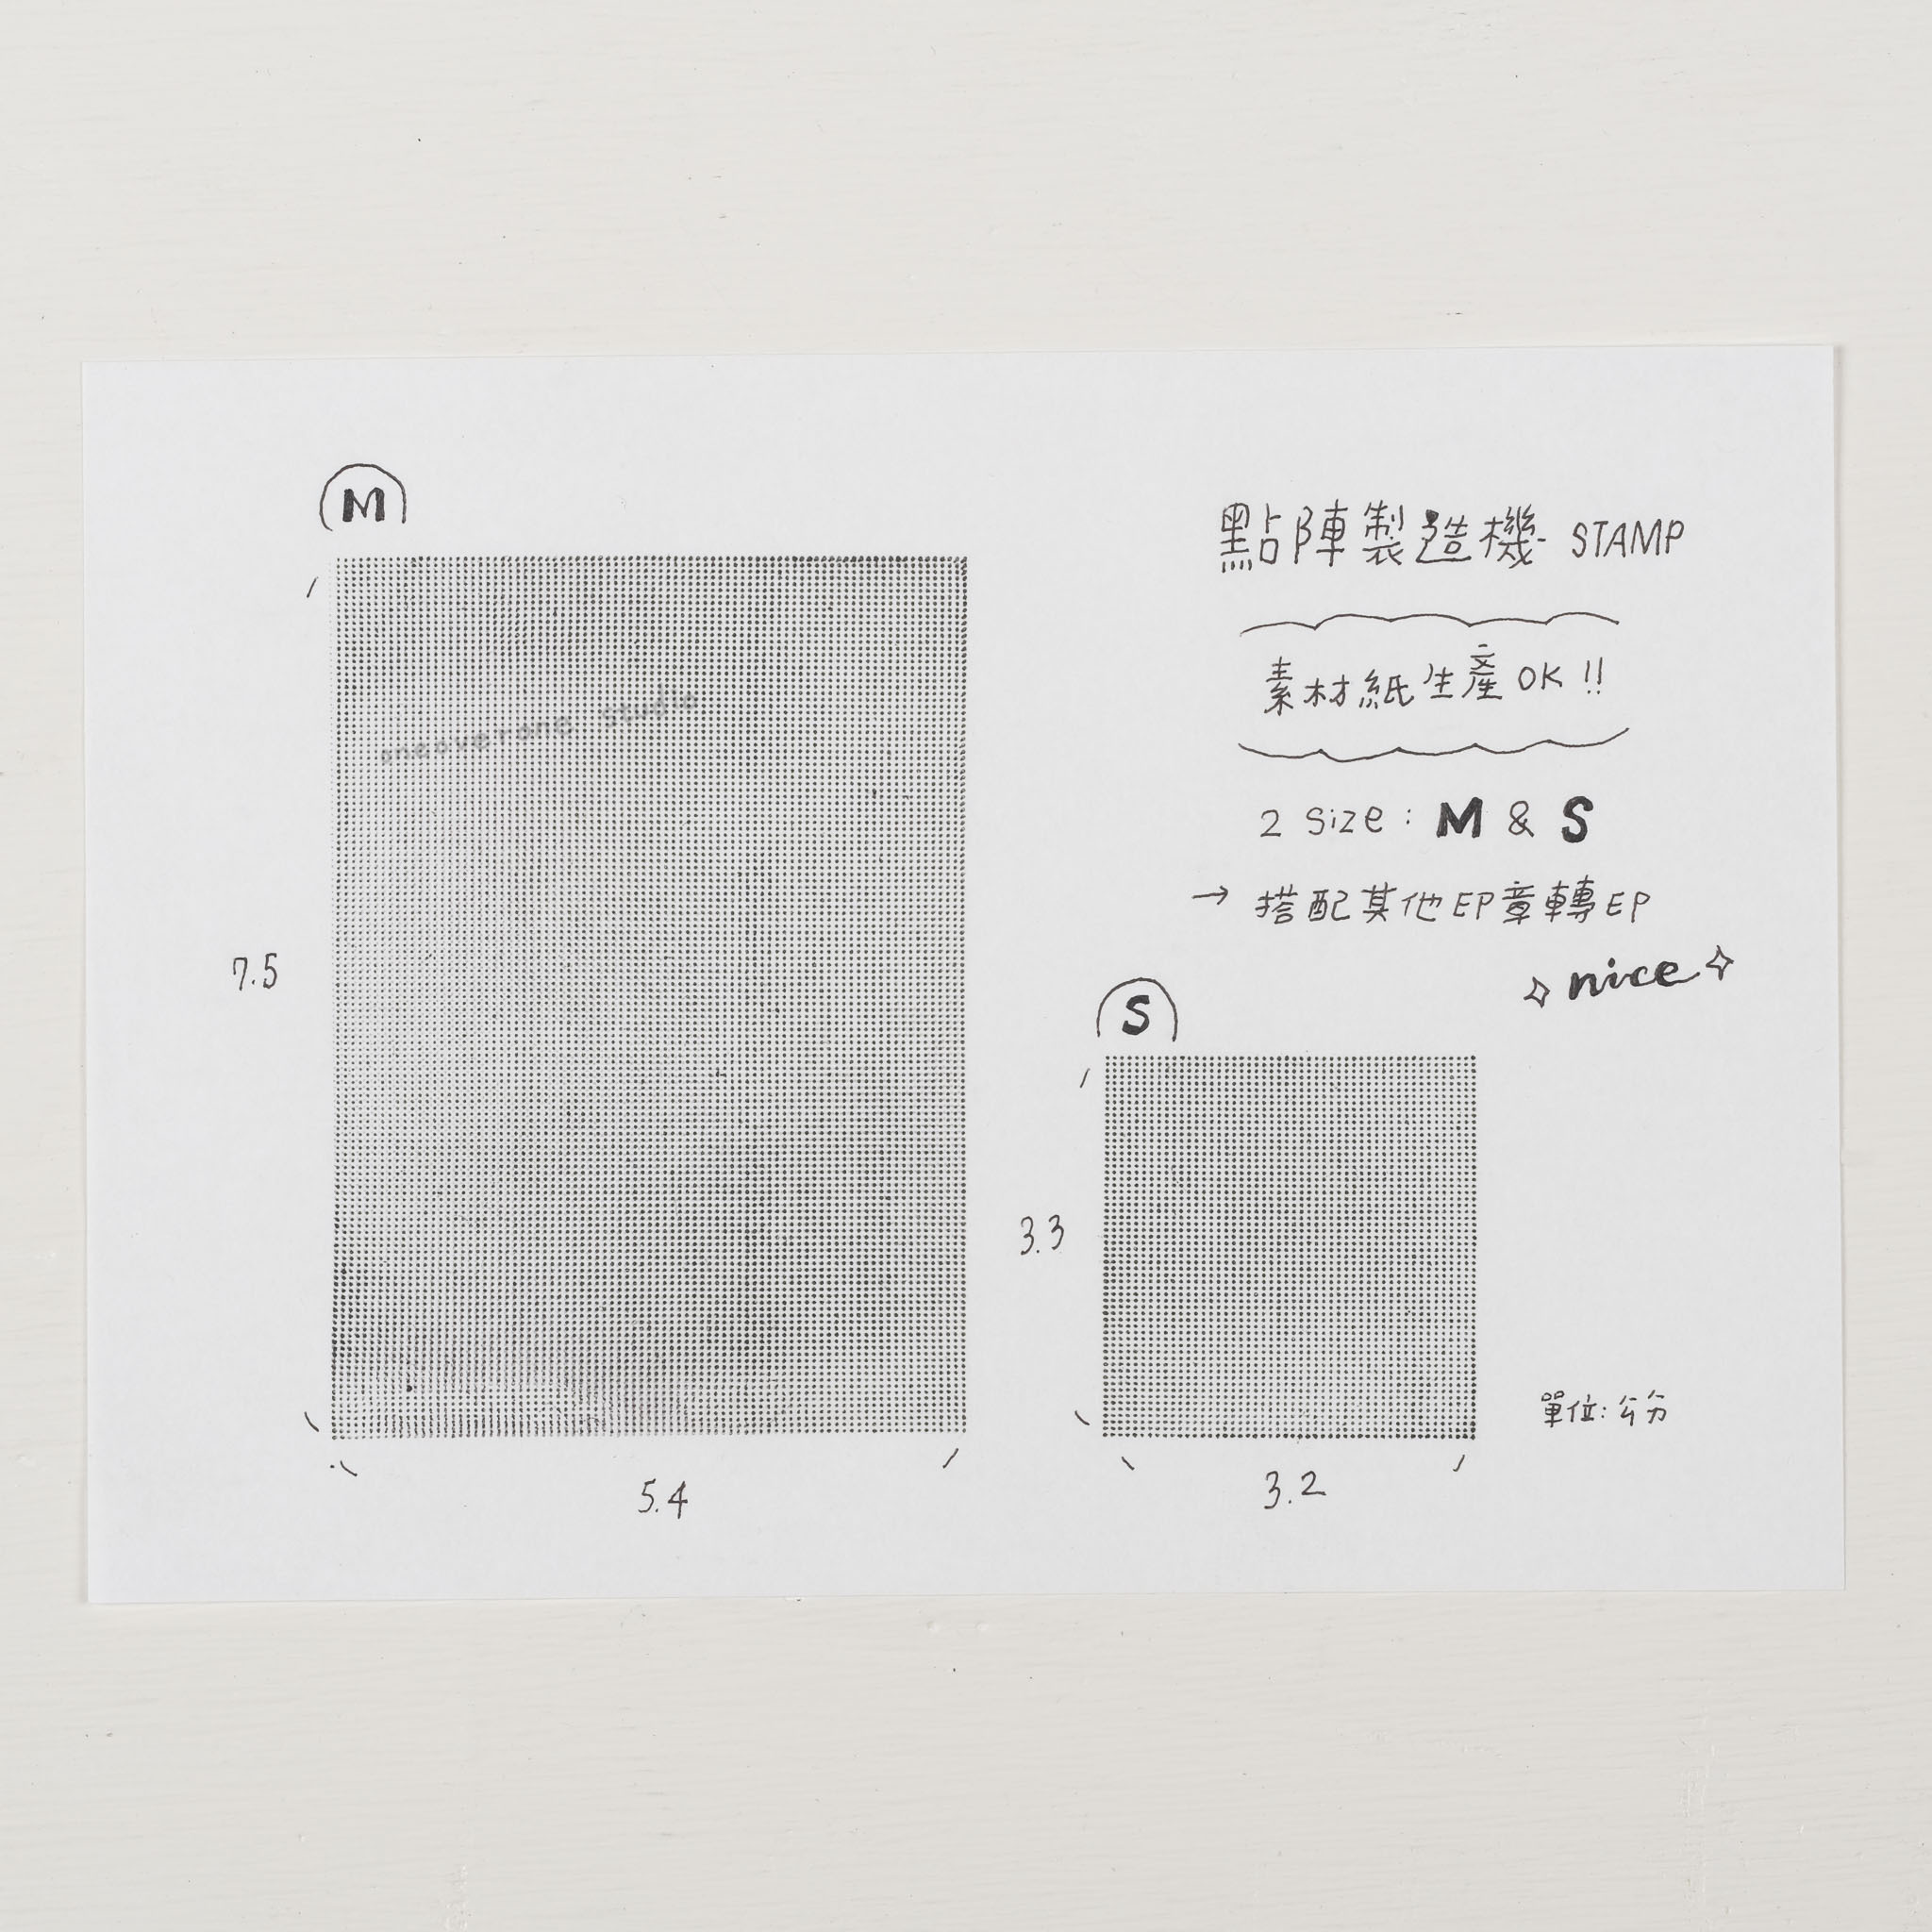 M
oncoverone studio
7.5
5.4
點陣製造機 STAMP
素材紙生產OK!!
2 size: M & S
→ 搭配其他印章轉印
nice
S
3.3
3.2
單位:公分